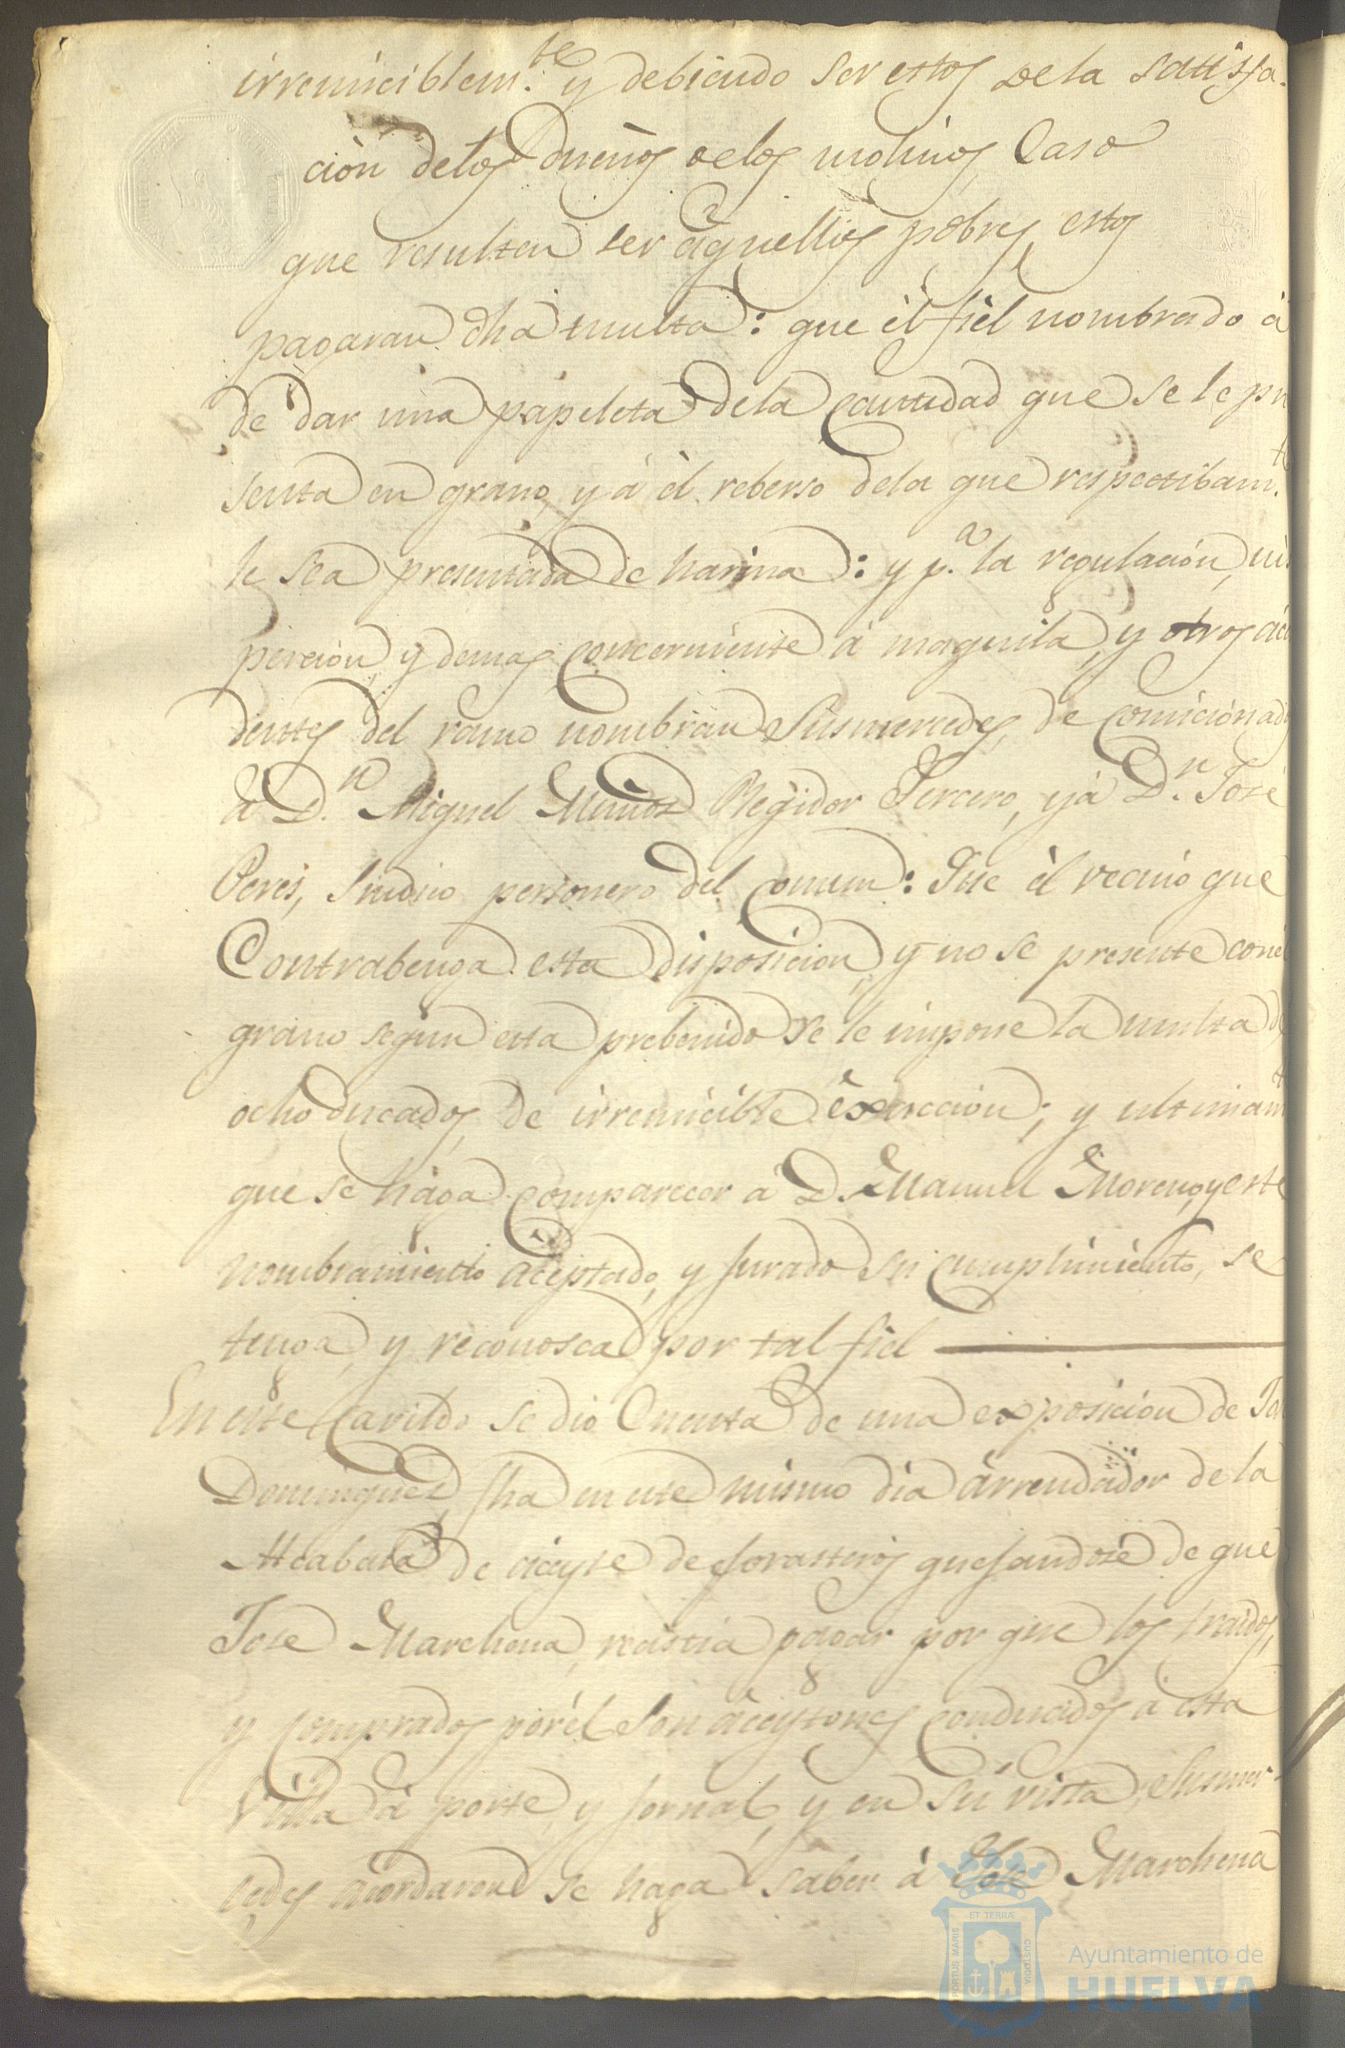 irremiciblem.te y debiendo ser estos de la satisfa-
ción delos dueños delos molinos, Caso
que resulten ser aquellos pobres, estos
pagaran dha multa: que él fiél nombrado á
de dar una papeleta dela cantidad que se le pre
senta en grano, y á él reberso dela que respectibam.te
le sea presentada de harina: y p.a la regulación, ins
peccion, y demas concerniente á maquila, y otros áci
dentes del ramo nombran Susmercedes, de comicionados
á D.n Miguel Muñoz Regidor Tercero, y á D.n José
Peres, Sindico personero del Comun: Que él vecino que
Contrabenga esta disposicion, y no se presente con él
grano segun esta prebenido se le impone la multa de
ocho ducados, de irremicible éxaccion; y ultimam.te
que se haga comparecer á D. Manuel Moreno, y este
nombramiento aceptado, y jurado su cumplimiento, se
tenga, y reconosca por tal fiel
En este Cavildo se dio Cuenta de una exposición de
Domingues, fha en este mismo dia arrendador de la
Alcabala de áceyte de forasteros quejandose de que
Jose Marchena, resistia pagar por que los traidos,
y comprados por él son áceytones conducidos á esta
Villa á porte, y jornal, y en su vista, Susmer-
cedes acordaron se haga saber á Marchena
ET TERRÆ
PORTUS MARIS
CUSTODIA
Ayuntamiento de
HUELVA